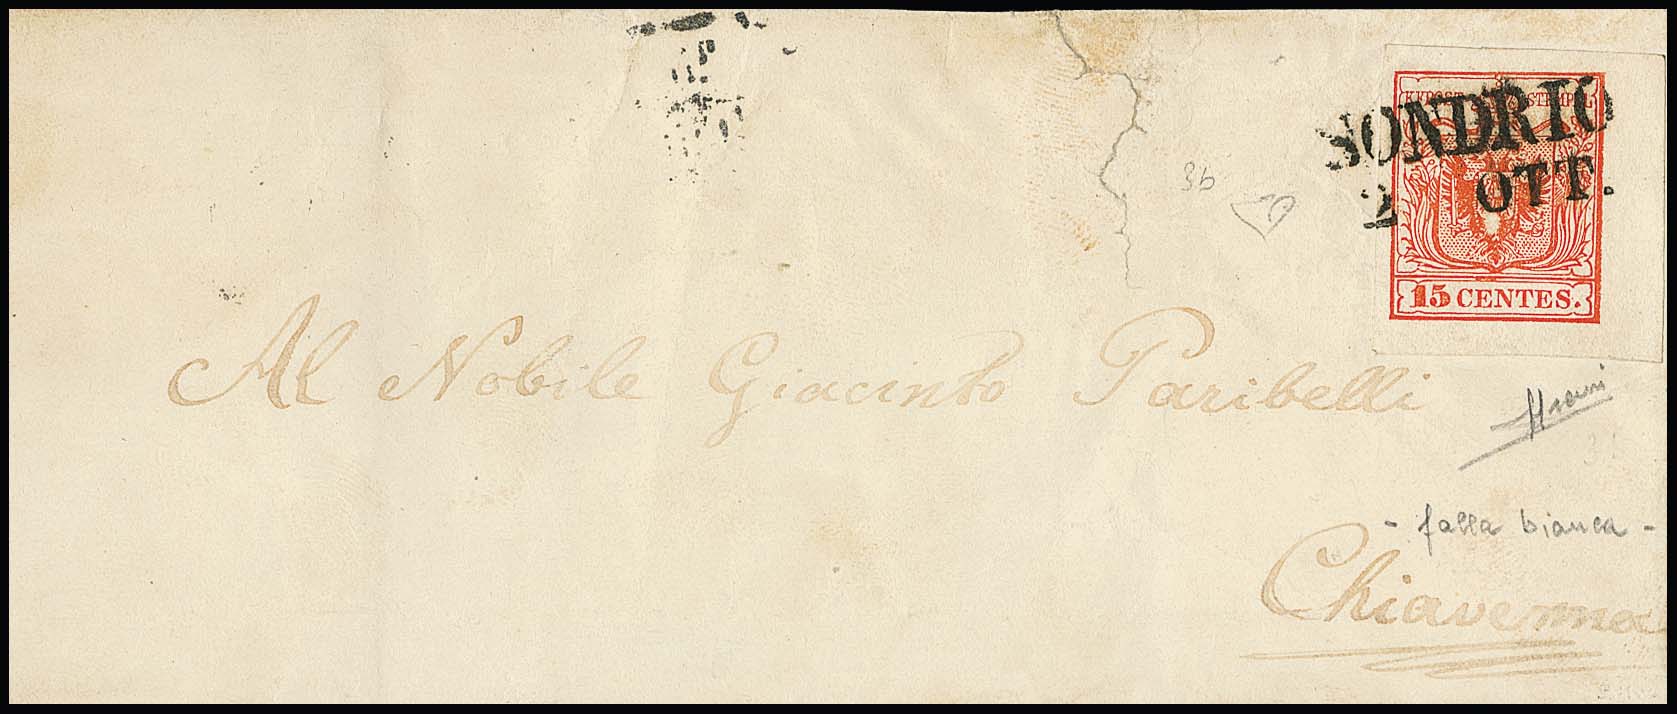 KKPOST STEMPEL
SONDRIO
2 OTT.
15 CENTES.
3b
Al Nobile Giacinto Paribelli
- falla bianca -
Chiavenna